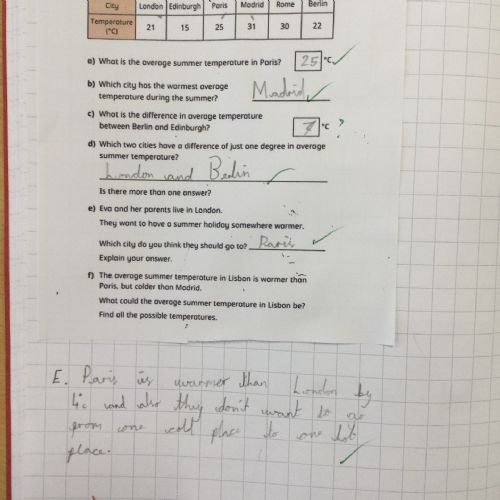 City London Edinburgh Paris Madrid Rome Berlin
Temperature (°C) 21 15 25 31 30 22
a) What is the average summer temperature in Paris? 25 °C
b) Which city has the warmest average
temperature during the summer? Madrid
c) What is the difference in average temperature
between Berlin and Edinburgh? 7 °C ?
d) Which two cities have a difference of just one degree in average
summer temperature?
London and Berlin
Is there more than one answer?
e) Eva and her parents live in London.
They want to have a summer holiday somewhere warmer.
Which city do you think they should go to? Paris
Explain your answer.
f) The average summer temperature in Lisbon is warmer than
Paris, but colder than Madrid.
What could the average summer temperature in Lisbon be?
Find all the possible temperatures.
E. Paris is warmer than London by
4°c and also they don't want to go
from one cold place to one hot
place.